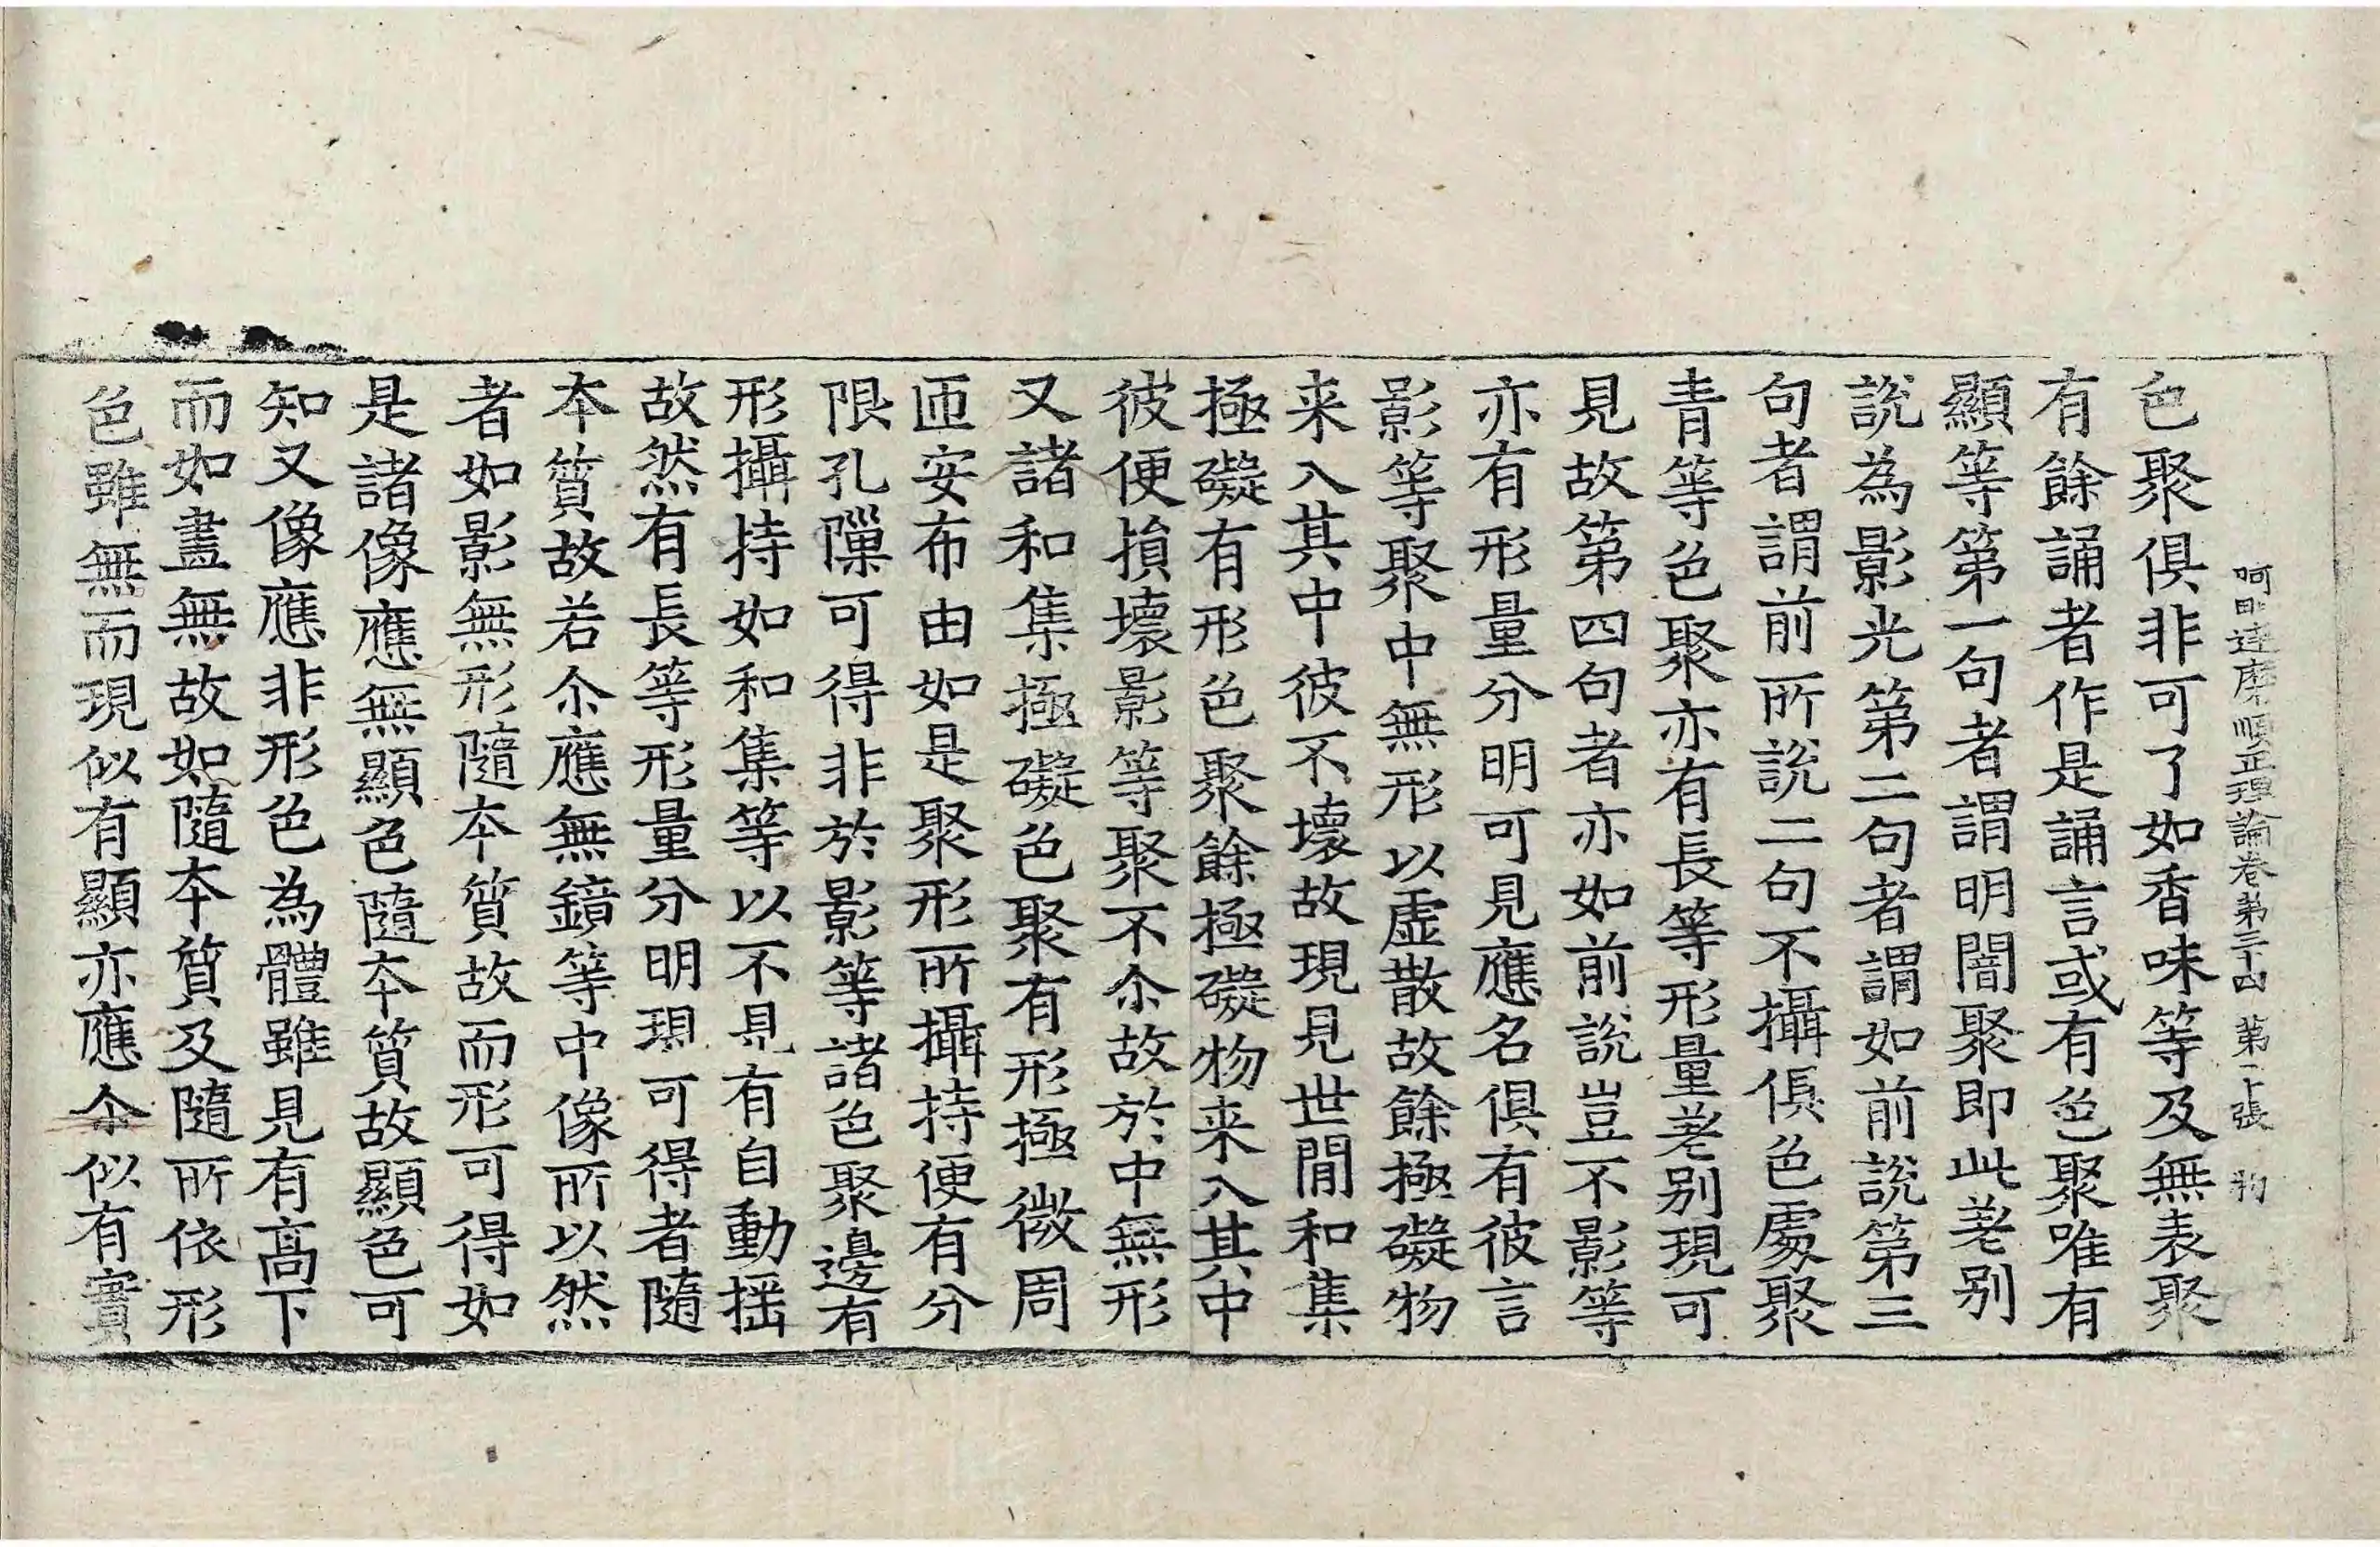 阿毗達磨順正理論卷第三十四 第十張 物
色聚俱非可了如香味等及無表聚
有餘誦者作是誦言或有色聚唯有
顯等第一句者謂明闇聚即此差别
說為影光第二句者謂如前說第三
句者謂前所說二句不攝俱色處聚
青等色聚亦有長等形量差别現可
見故第四句者亦如前說豈不影等
亦有形量分明可見應名俱有彼言
影等聚中無形以虚散故餘極礙物
来入其中彼不壞故現見世閒和集
極礙有形色聚餘極礙物来入其中
彼便損壞影等聚不尒故於中無形
又諸和集極礙色聚有形極微周
匝安布由如是聚形所攝持便有分
限孔隟可得非於影等諸色聚邊有
形攝持如和集等以不見有自動揺
故然有長等形量分明現可得者隨
本質故若尒應無鏡等中像所以然
者如影無形隨本質故而形可得如
是諸像應無顯色隨本質故顯色可
知又像應非形色為體雖見有高下
而如畫無故如隨本質及隨所依形
色雖無而現似有顯亦應尒似有實